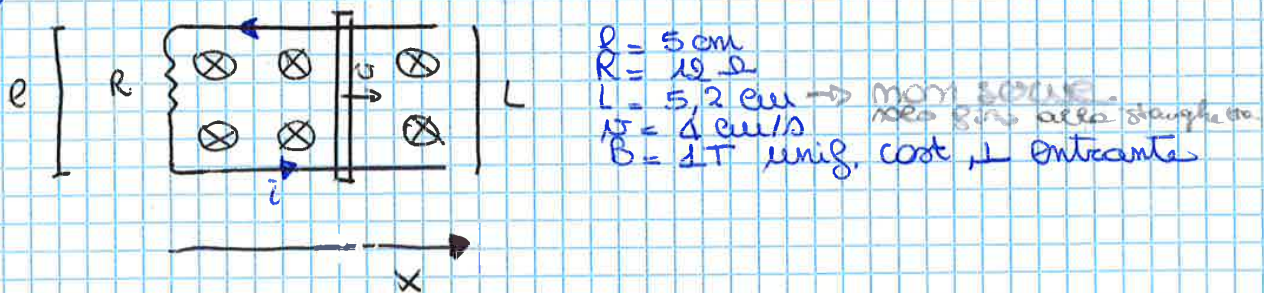 l R L
i
x
l = 5 cm
R = 12 Ω
L = 5,2 cm → non serve.
solo fino alla stanghetta.
v = 1 cm/s
B = 1T unif. cost ⊥ entrante